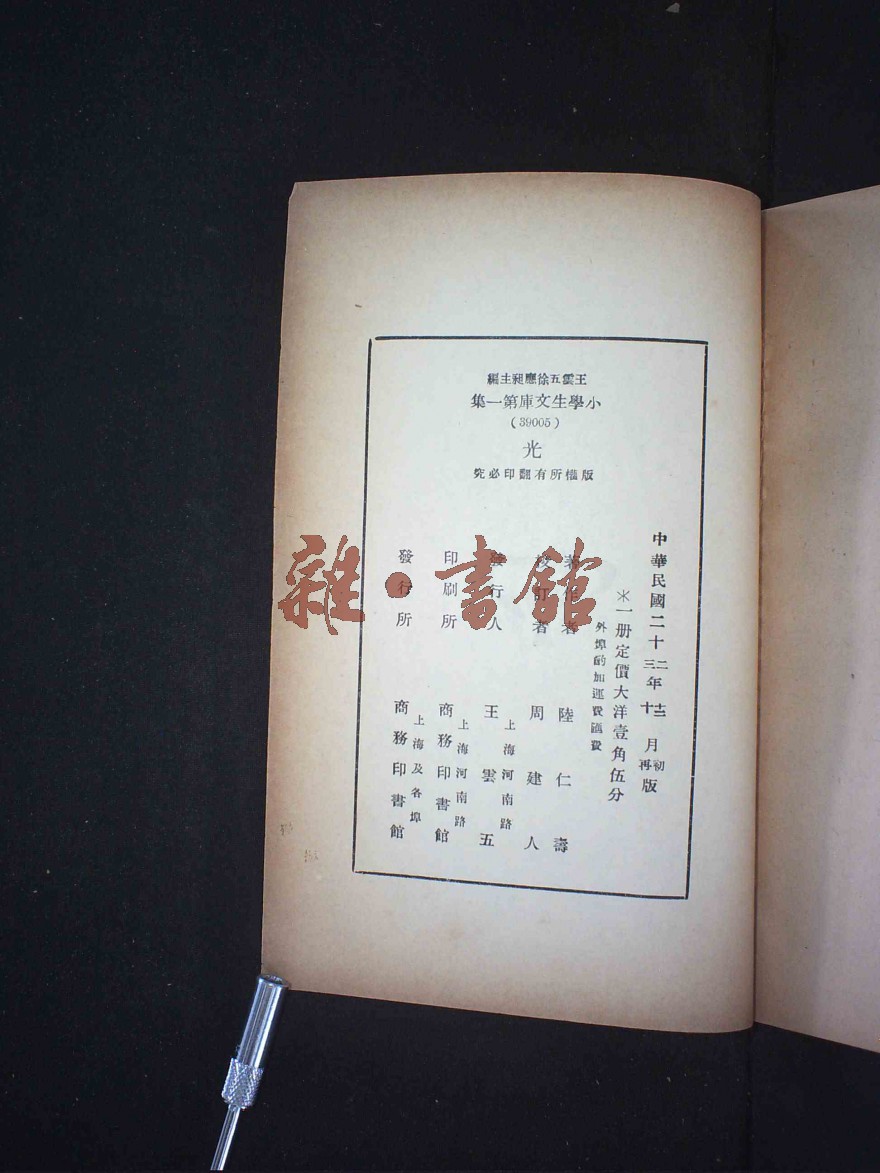 王雲五徐應昶主編
小學生文庫第一集
(39005)
光
版權所有翻印必究
中華民國二十二三年十二十月初再版
＊一册定價大洋壹角伍分
外埠酌加運費匯費
著作者 陸仁壽
校訂者 周建人
發行人 上海河南路 王雲五
印刷所 上海河南路 商務印書館
發行所 上海及各埠 商務印書館
雜·書館